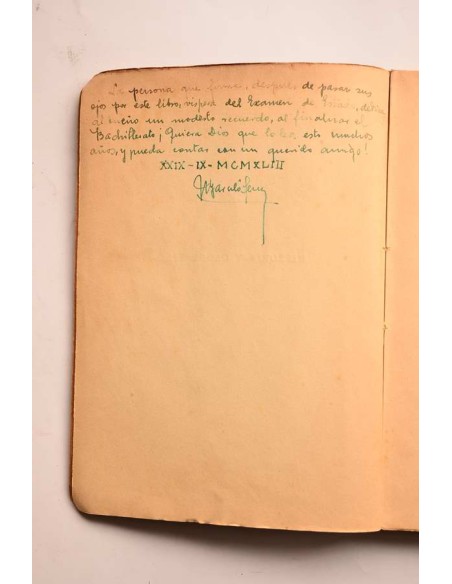 La persona que firma, después de pasar sus
ojos por este libro, víspera del Examen de dedica
al dueño un modesto recuerdo, al finalizar el
Bachillerato ¡Quiera Dios que lo lea, esto muchos
años, y pueda contar con un querido amigo!
XXIX-IX-MCMXLIII